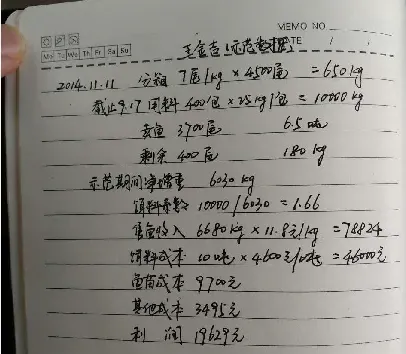 MEMO NO.
DATE / /
Mo Tu We Th Fr Sa Su
毛金杏示范数据
2014.11.11 分箱 7尾/kg × 4500尾 = 650kg
截止9.17 用料 400包 × 25kg/包 = 10000kg
卖鱼 3700尾 6.5吨
剩余 400尾 180kg
示范期间净增重 6030kg
饵料系数 10000/6030 = 1.66
售鱼收入 6680kg × 11.8元/kg = 78824
饲料成本 10吨 × 4600元/吨 = 46000元
鱼苗成本 9700元
其他成本 3495元
利润 19629元